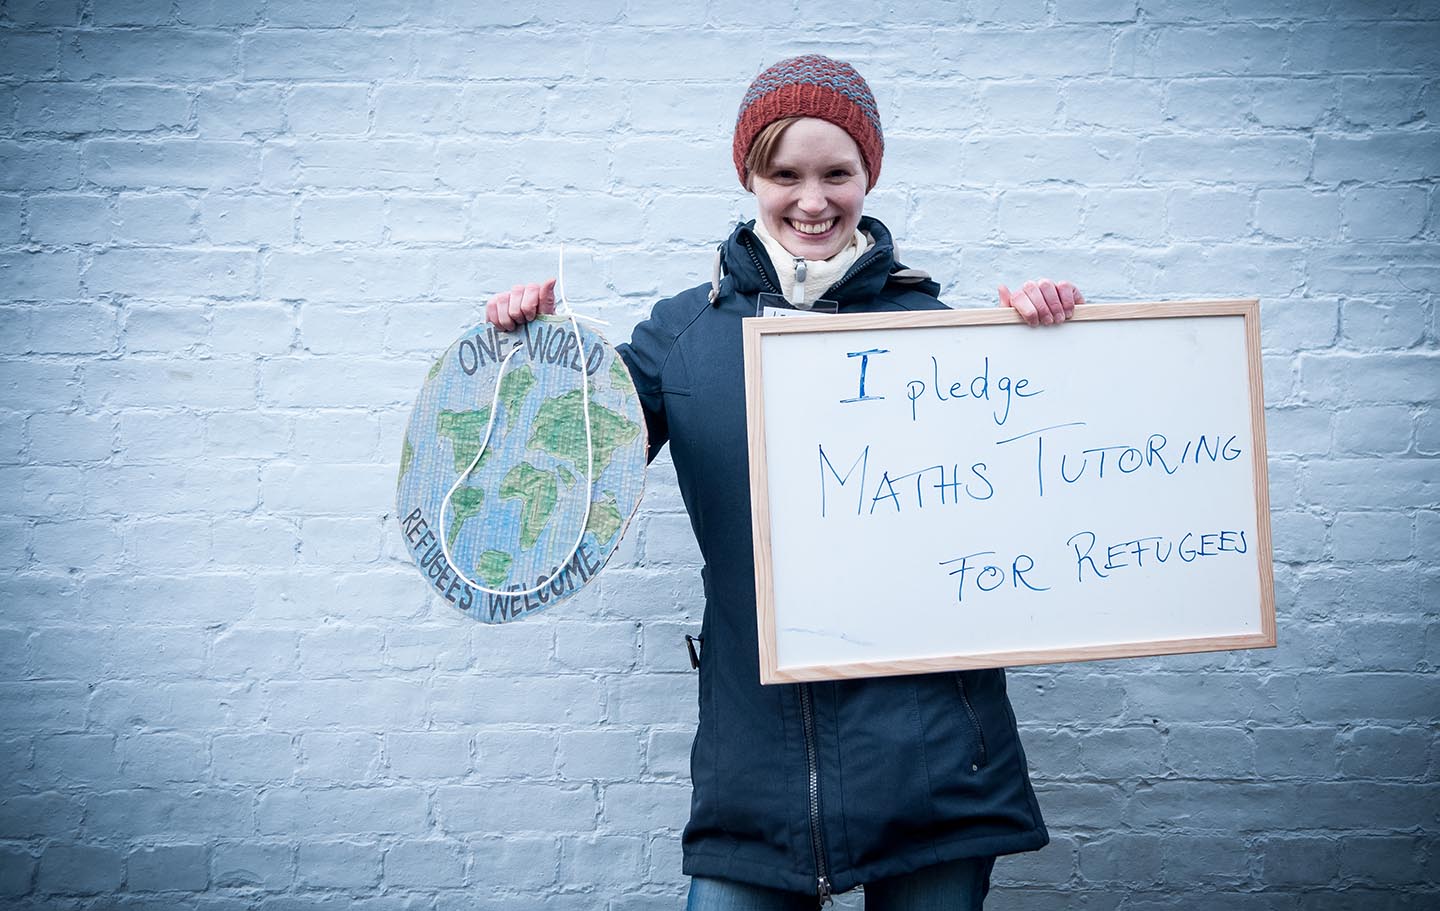 ONE WORLD
REFUGEES WELCOME
I pledge
MATHS TUTORING
FOR REFUGEES